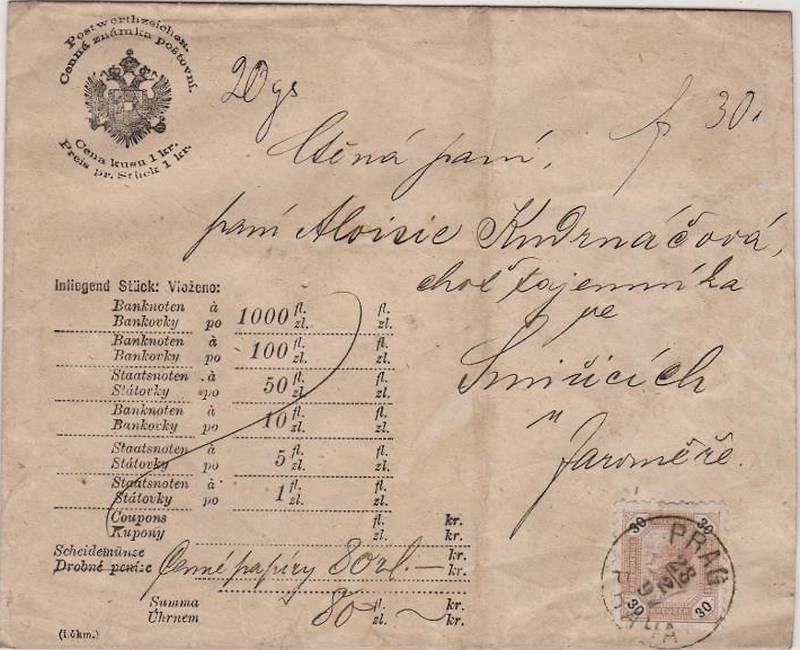 Postwerthzeichen.
Cenná známka poštovní.
Cena kusu 1 kr.
Preis pr. Stück 1 kr.
20 gs
f 30.
Ctěná paní,
paní Aloisie Kudrnáčová,
choť tajemníka
ve
Smiřicích
u
Jaroměře.
Inliegend Stück: Vloženo:
Banknoten à 1000 fl. fl.
Bankovky po zl. zl.
Banknoten à 100 fl. fl.
Bankovky po zl. zl.
Staatsnoten à 50 fl. fl.
Státovky po zl. zl.
Banknoten à 10 fl. fl.
Bankovky po zl. zl.
Staatsnoten à 5 fl. fl.
Státovky po zl. zl.
Staatsnoten à 1 fl. fl.
Státovky po zl. zl.
Coupons fl. kr.
Kupony zl. kr.
Scheidemünze kr.
Drobné peníze Cenné papíry 80 zl. — kr.
Summa 80 fl. kr.
Úhrnem zl. kr.
(böhm.)
30 30
30 30
KREUZER
PRAG
28
2
PRAHA